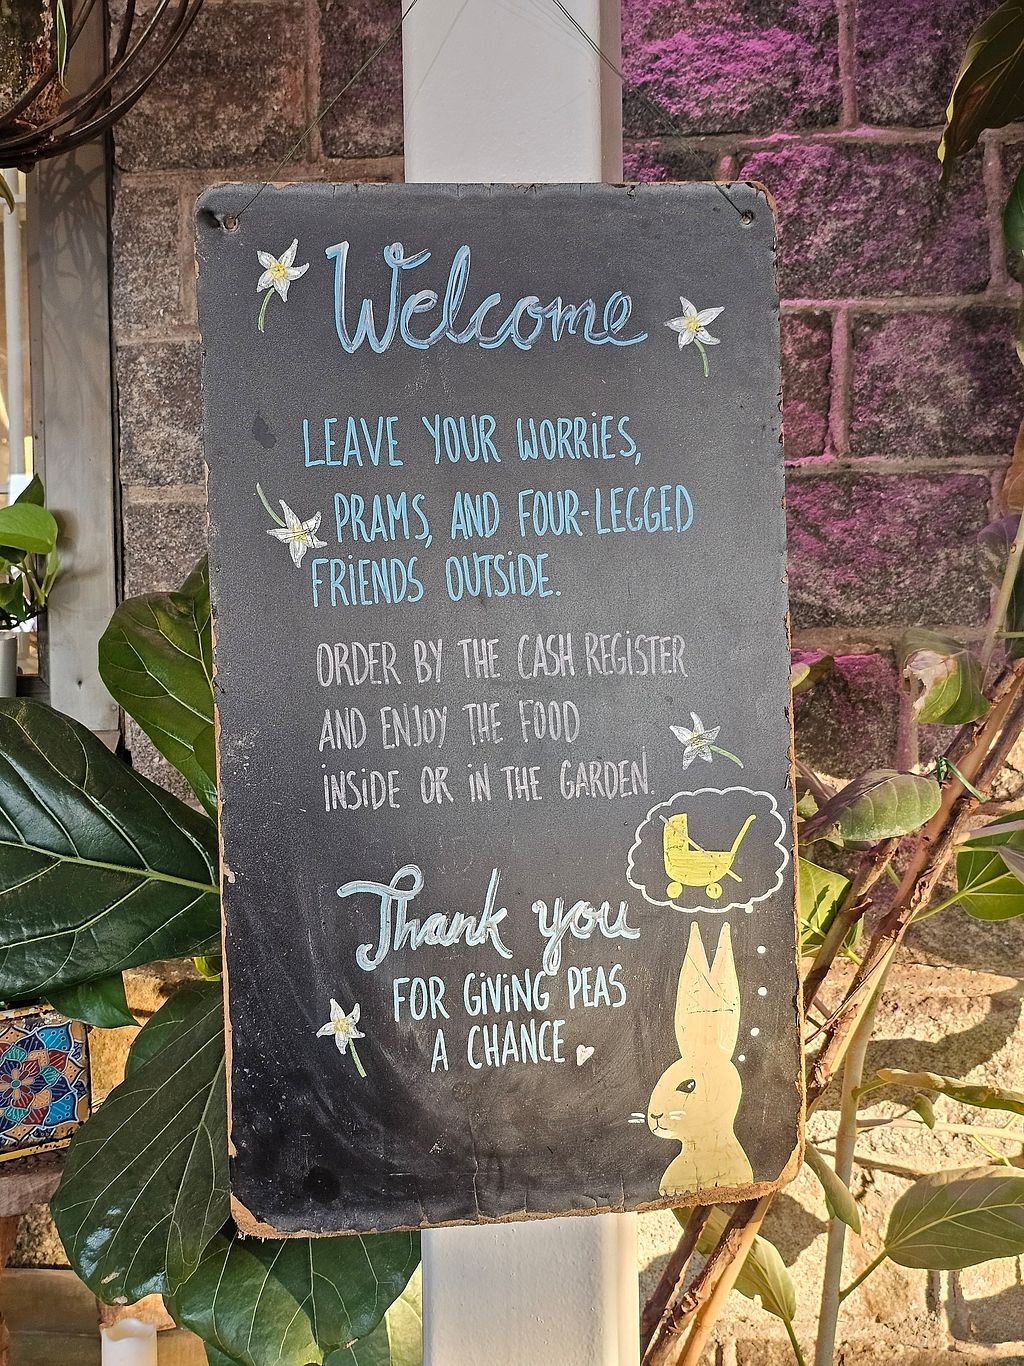 Welcome
LEAVE YOUR WORRiES,
PRAMS, AND FOUR-LEGGED
FRiENDS OUTSiDE.
ORDER BY THE CASH REGiSTER
AND ENJOY THE FOOD
iNSiDE OR iN THE GARDEN.
Thank you
FOR GiViNG PEAS
A CHANCE